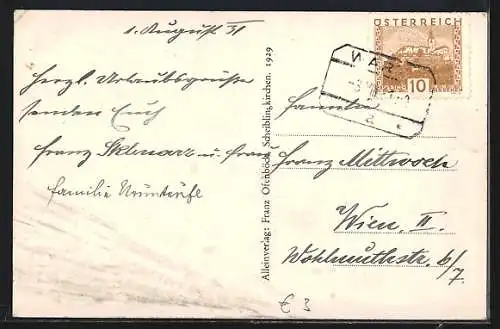 1. August 31
Herzl. Urlaubsgrüße
senden Euch
Franz Sklenarz u. Frau
Familie
Alleinverlag: Franz Ofenböck, Scheiblingkirchen. 1929
ÖSTERREICH
10
WAR
2
Familie
Franz Mittwoch
Wien II.
Wohlmuthstr. 6/
7.
€ 3